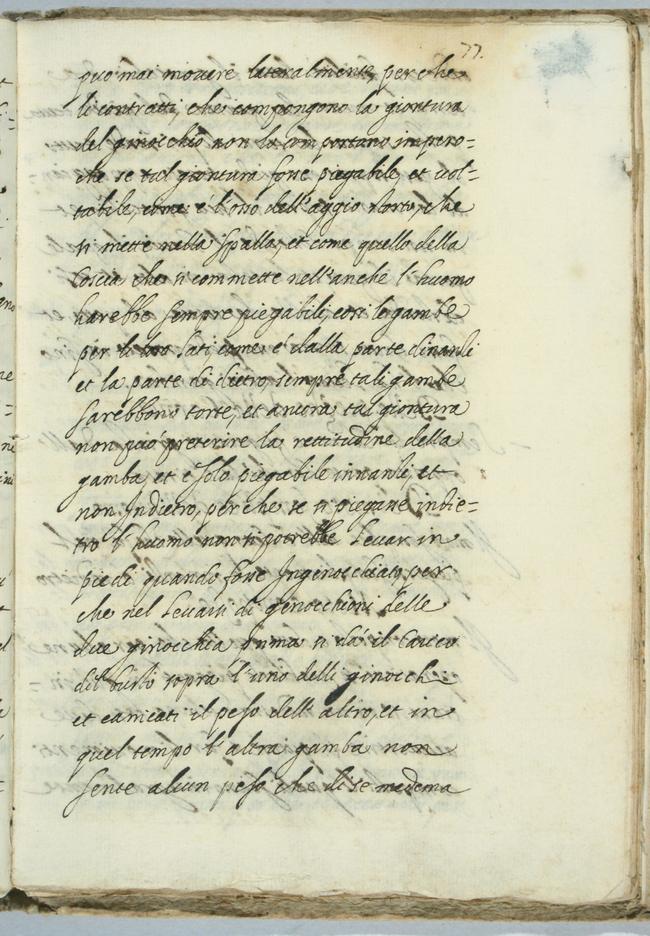 77.
può mai movere lateralmente, perche
li contratti, che compongono la giontura
del ginocchio non la comportano impero=
che se tal giontura fosse piegabile, et vol=
tabile, come è l'osso dell'aggio storto, che
si mette nella spalla, et come quello della
Coscia che si commette nell'anche l'huomo
harebbe sempre piegabili, cosi le gambe
per li loro lati come è dalla parte dinanti
et la parte di dietro, sempre tali gambe
sarebbono torte, et ancora tal giontura
non può preterire la rettitudine della
gamba, et è solo piegabile innanti, et
non Indietro, perche se si piegane indie=
tro l'huomo non si potrebbe Levar in
piedi quando fosse Ingenocchiato, per
che nel Levarsi di genocchioni delle
due ginocchia prima si dà il Carico
del busto sopra l'uno delli ginocchi
et caricati il peso dell'altro, et in
quel tempo l'altra gamba non
sente alcun peso che di se medema